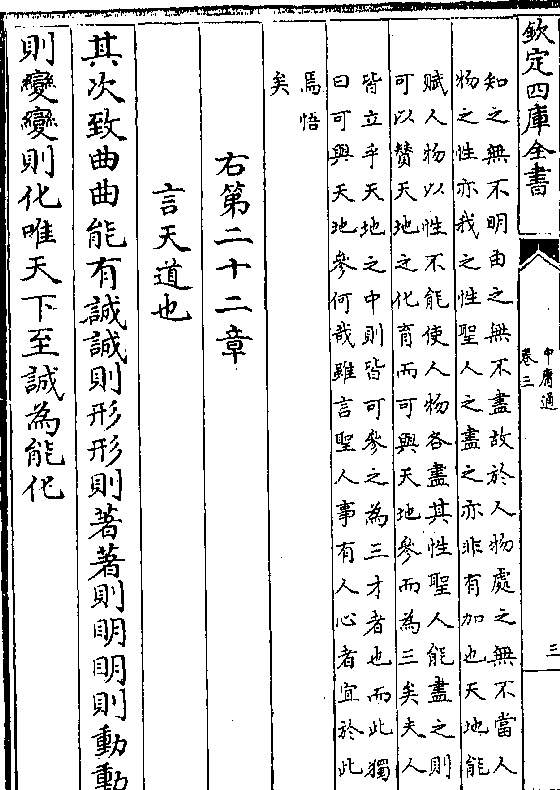 欽定四庫全書
中庸通
卷三
三
知之無不明由之無不盡故於人物處之無不當人
物之性亦我之性聖人之盡之亦非有加也天地能
賦人物以性不能使人物各盡其性聖人能盡之則
可以贊天地之化育而可與天地參而為三矣夫人
皆立乎天地之中則皆可參之為三才者也而此獨
曰可與天地參何哉雖言聖人事有人心者宜於此
焉悟
矣
右第二十二章
言天道也
其次致曲曲能有誠誠則形形則著著則明明則動動
則變變則化唯天下至誠為能化